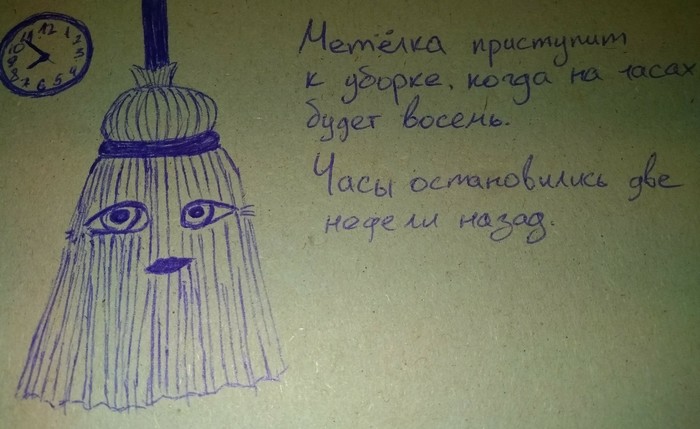 12
1
2
3
4
5
6
7
8
9
10
11
Метёлка приступит
к уборке, когда на часах
будет восемь.
Часы остановились две
недели назад.